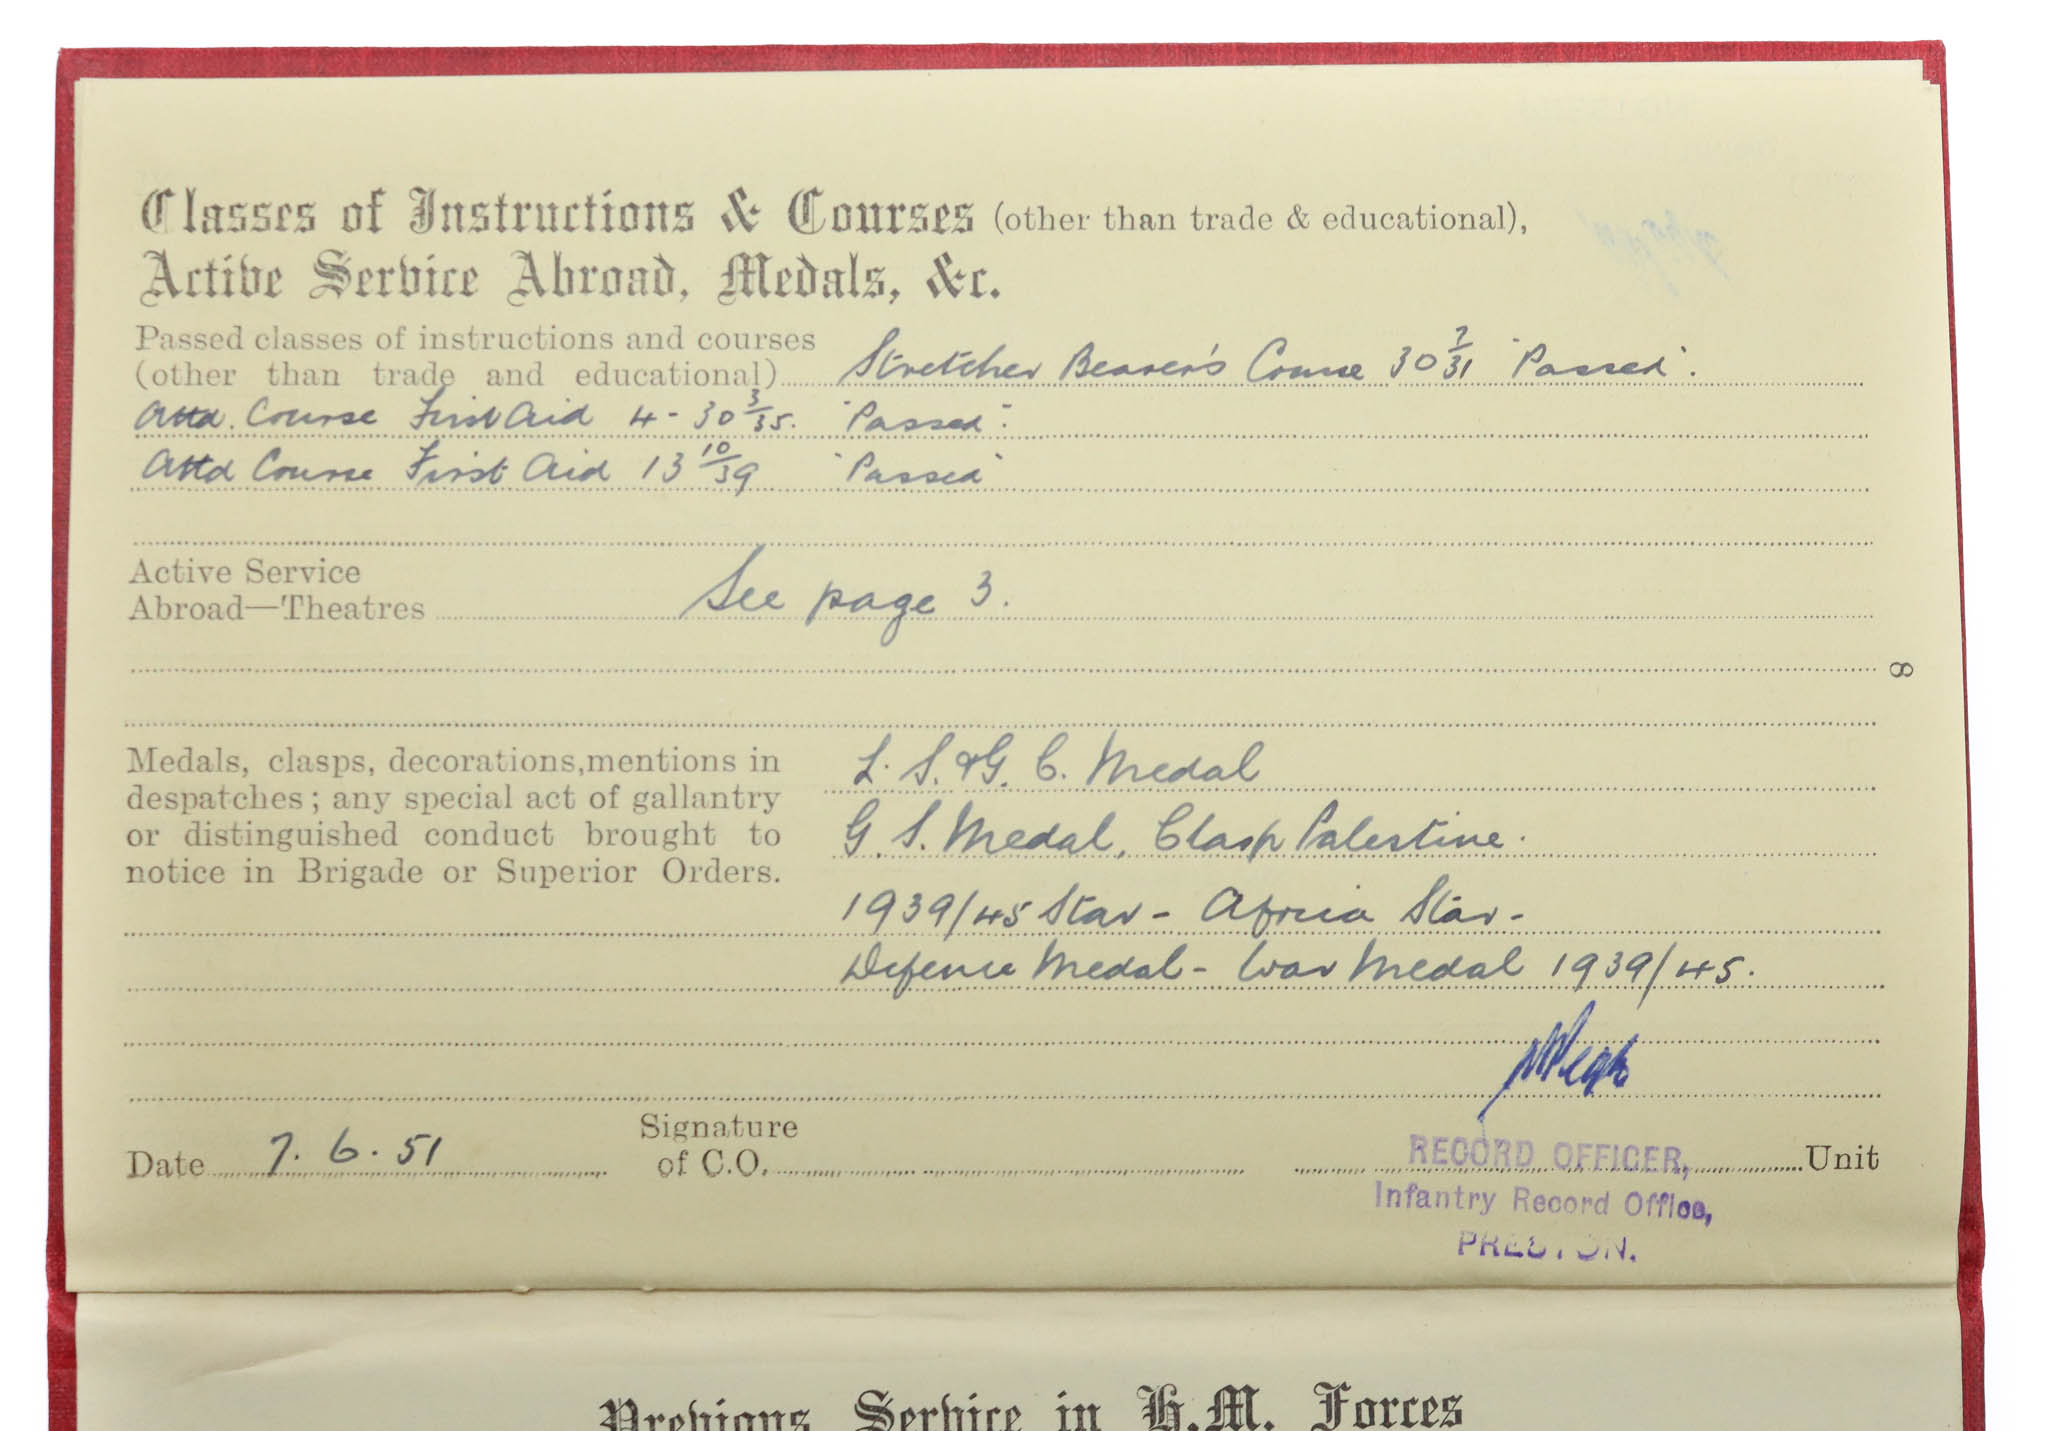 Classes of Instructions & Courses (other than trade & educational),
Active Service Abroad, Medals, &c.
Passed classes of instructions and courses
(other than trade and educational) Stretcher Bearer's Course 30 7/31 "Passed".
Attd. Course First Aid 4 - 30 3/35. "Passed".
Attd Course First Aid 13 10/39 "Passed"
Active Service
Abroad—Theatres See page 3.
8
Medals, clasps, decorations, mentions in
despatches; any special act of gallantry
or distinguished conduct brought to
notice in Brigade or Superior Orders.
L. S. & G. C. Medal
G. S. Medal, Clasp Palestine.
1939/45 Star - Africa Star -
Defence Medal - War Medal 1939/45.
Date 7. 6. 51
Signature
of C.O. Unit
RECORD OFFICER,
Infantry Record Office,
PRESTON.
Previous Service in H.M. Forces